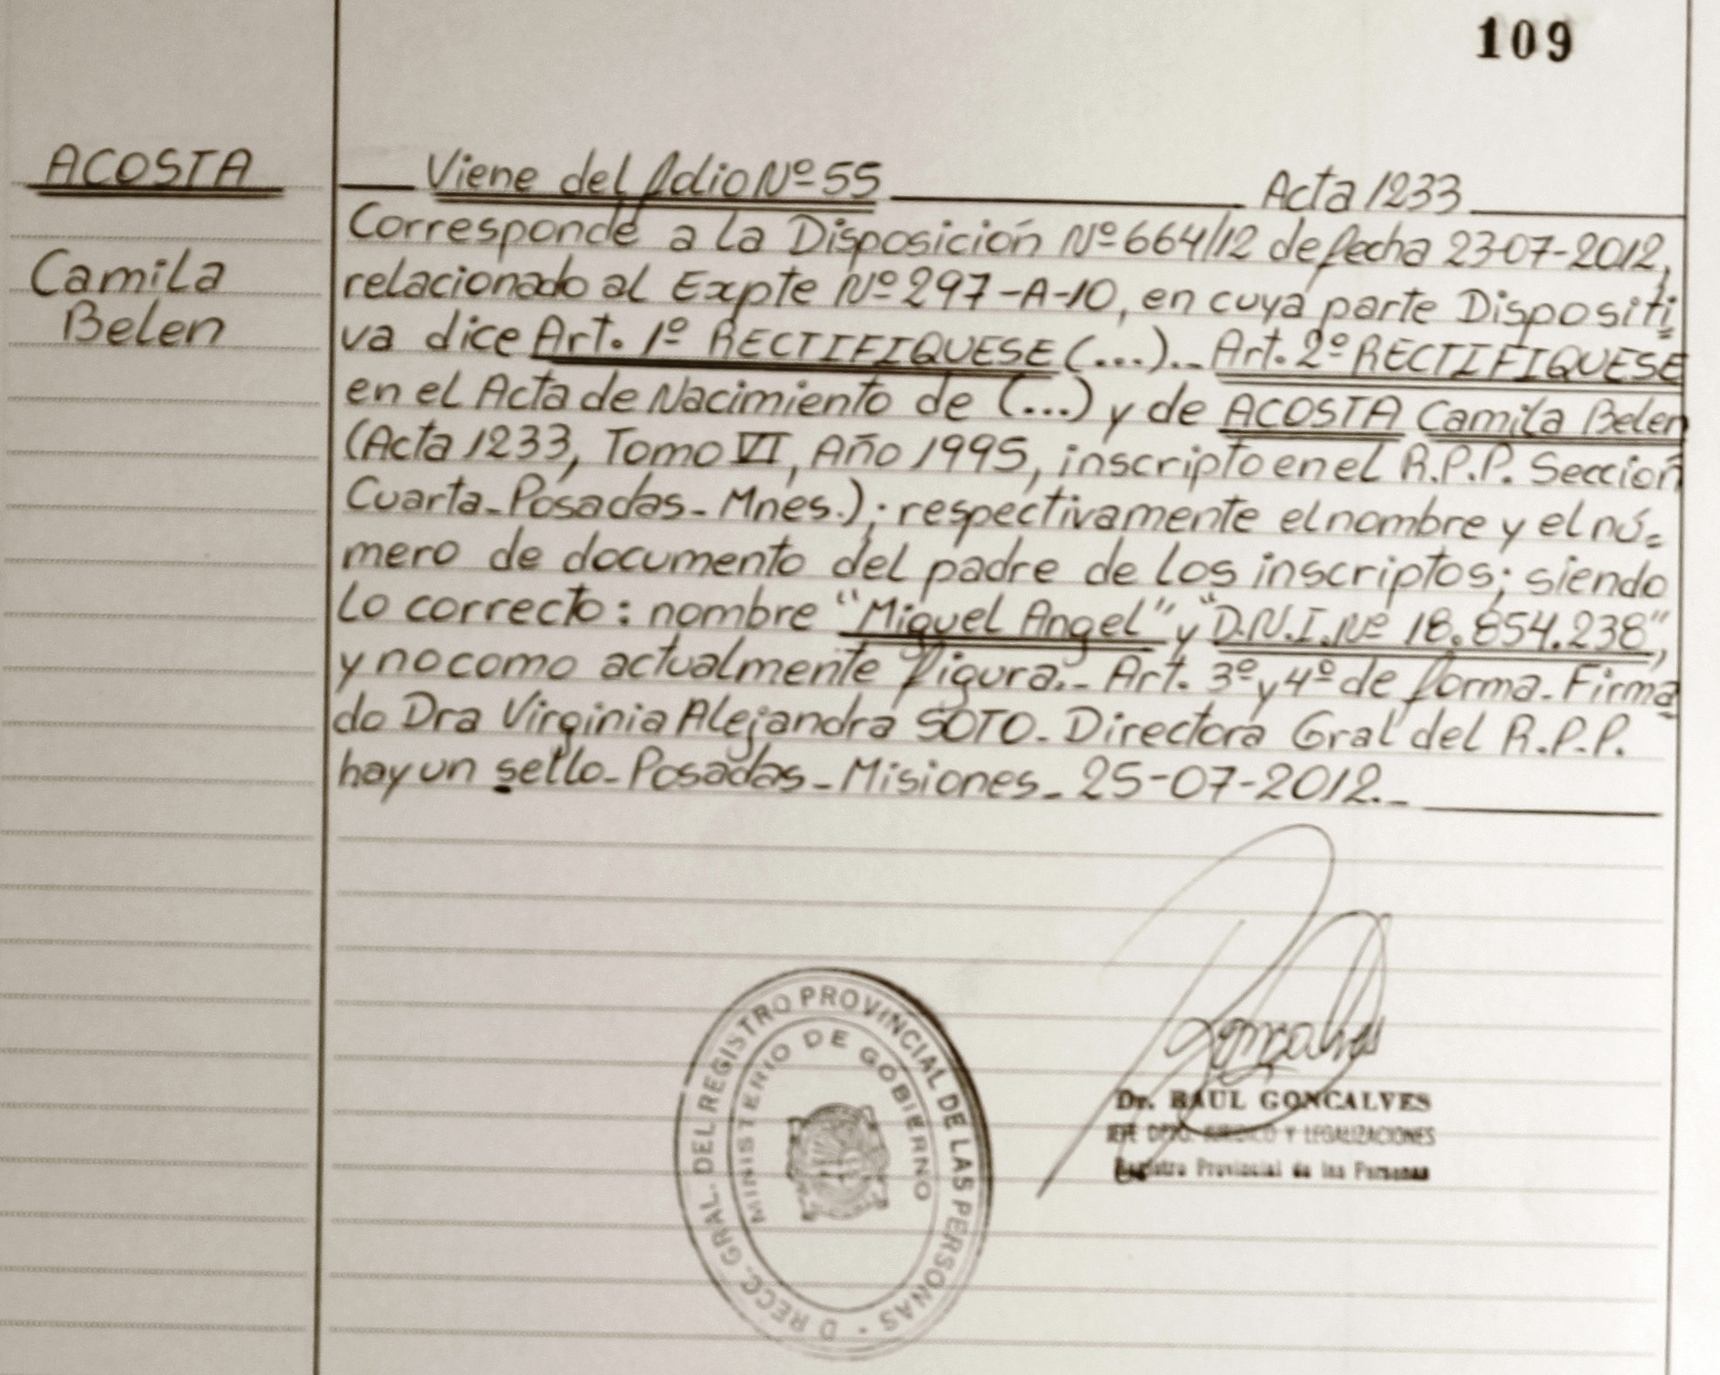 109
ACOSTA
Camila
Belen
Viene del folio Nº 55 Acta 1233
Corresponde a la Disposición Nº 664/12 de fecha 23-07-2012,
relacionado al Expte Nº 297-A-10, en cuya parte Dispositi=
va dice Art. 1º RECTIFIQUESE (...)_ Art. 2º RECTIFIQUESE
en el Acta de Nacimiento de (...) y de ACOSTA Camila Belen
(Acta 1233, Tomo VI, Año 1995, inscripto en el R.P.P. Sección
Cuarta_Posadas_Mnes.); respectivamente el nombre y el nú=
mero de documento del padre de los inscriptos; siendo
lo correcto: nombre "Miguel Angel" y "D.N.I. Nº 18.854.238",
y no como actualmente figura._ Art. 3º y 4º de forma_Firma=
do Dra Virginia Alejandra SOTO_ Directora Gral del R.P.P.
hay un sello_Posadas_Misiones_ 25-07-2012._
DIRECC. GRAL. DEL REGISTRO PROVINCIAL DE LAS PERSONAS
MINISTERIO DE GOBIERNO
Goncalves
Dr. RAUL GONCALVES
JEFE DPTO. JURIDICO Y LEGALIZACIONES
Registro Provincial de las Personas